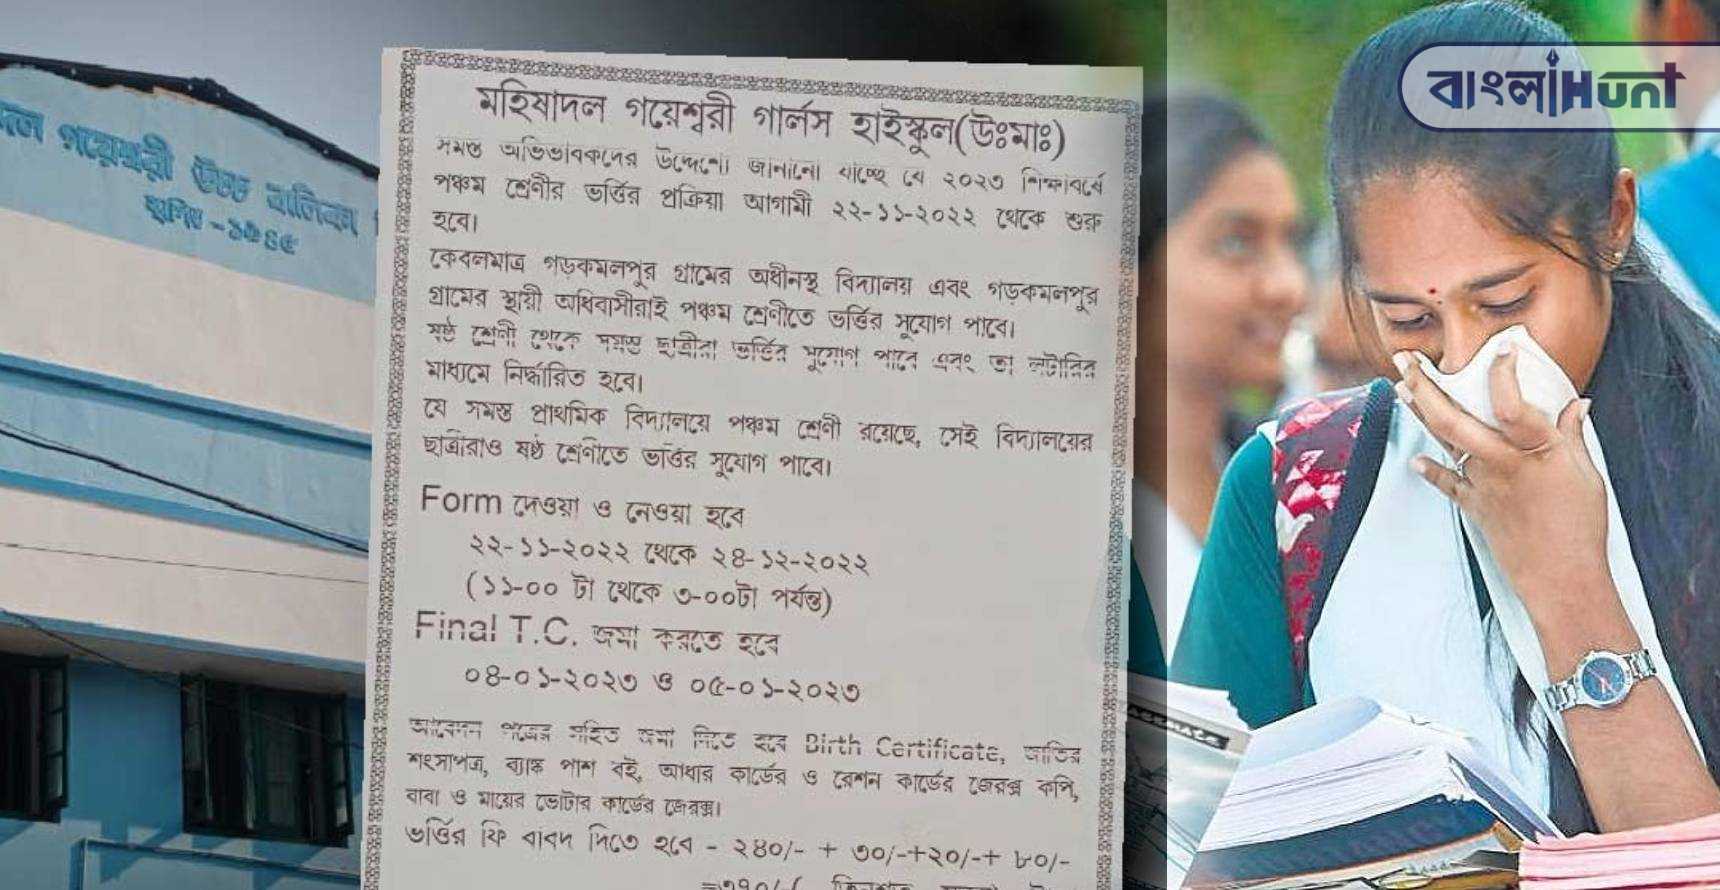 বাংলাHunt
গয়েশ্বরী উচ্চ বালিকা
মহিষাদল গয়েশ্বরী গার্লস হাইস্কুল(উঃমাঃ)
সমস্ত অভিভাবকদের উদ্দেশ্যে জানানো যাচ্ছে যে ২০২৩ শিক্ষাবর্ষে
পঞ্চম শ্রেণীর ভর্ত্তির প্রক্রিয়া আগামী ২২-১১-২০২২ থেকে শুরু
হবে।
কেবলমাত্র গড়কমলপুর গ্রামের অধীনস্থ বিদ্যালয় এবং গড়কমলপুর
গ্রামের স্থায়ী অধিবাসীরাই পঞ্চম শ্রেণীতে ভর্ত্তির সুযোগ পাবে।
ষষ্ঠ শ্রেণী থেকে সমস্ত ছাত্রীরা ভর্ত্তির সুযোগ পাবে এবং তা লটারির
মাধ্যমে নির্দ্ধারিত হবে।
যে সমস্ত প্রাথমিক বিদ্যালয়ে পঞ্চম শ্রেণী রয়েছে, সেই বিদ্যালয়ের
ছাত্রীরাও ষষ্ঠ শ্রেণীতে ভর্ত্তির সুযোগ পাবে।
Form দেওয়া ও নেওয়া হবে
২২-১১-২০২২ থেকে ২৪-১২-২০২২
(১১-০০ টা থেকে ৩-০০টা পর্যন্ত)
Final T.C. জমা করতে হবে
০৪-০১-২০২৩ ও ০৫-০১-২০২৩
আবেদন পত্রের সহিত জমা দিতে হবে Birth Certificate, জাতির
শংসাপত্র, ব্যাঙ্ক পাশ বই, আধার কার্ডের ও রেশন কার্ডের জেরক্স কপি,
বাবা ও মায়ের ভোটার কার্ডের জেরক্স।
ভর্ত্তির ফি বাবদ দিতে হবে - ২৪০/- + ৩০/-+২০/-+ ৮০/-